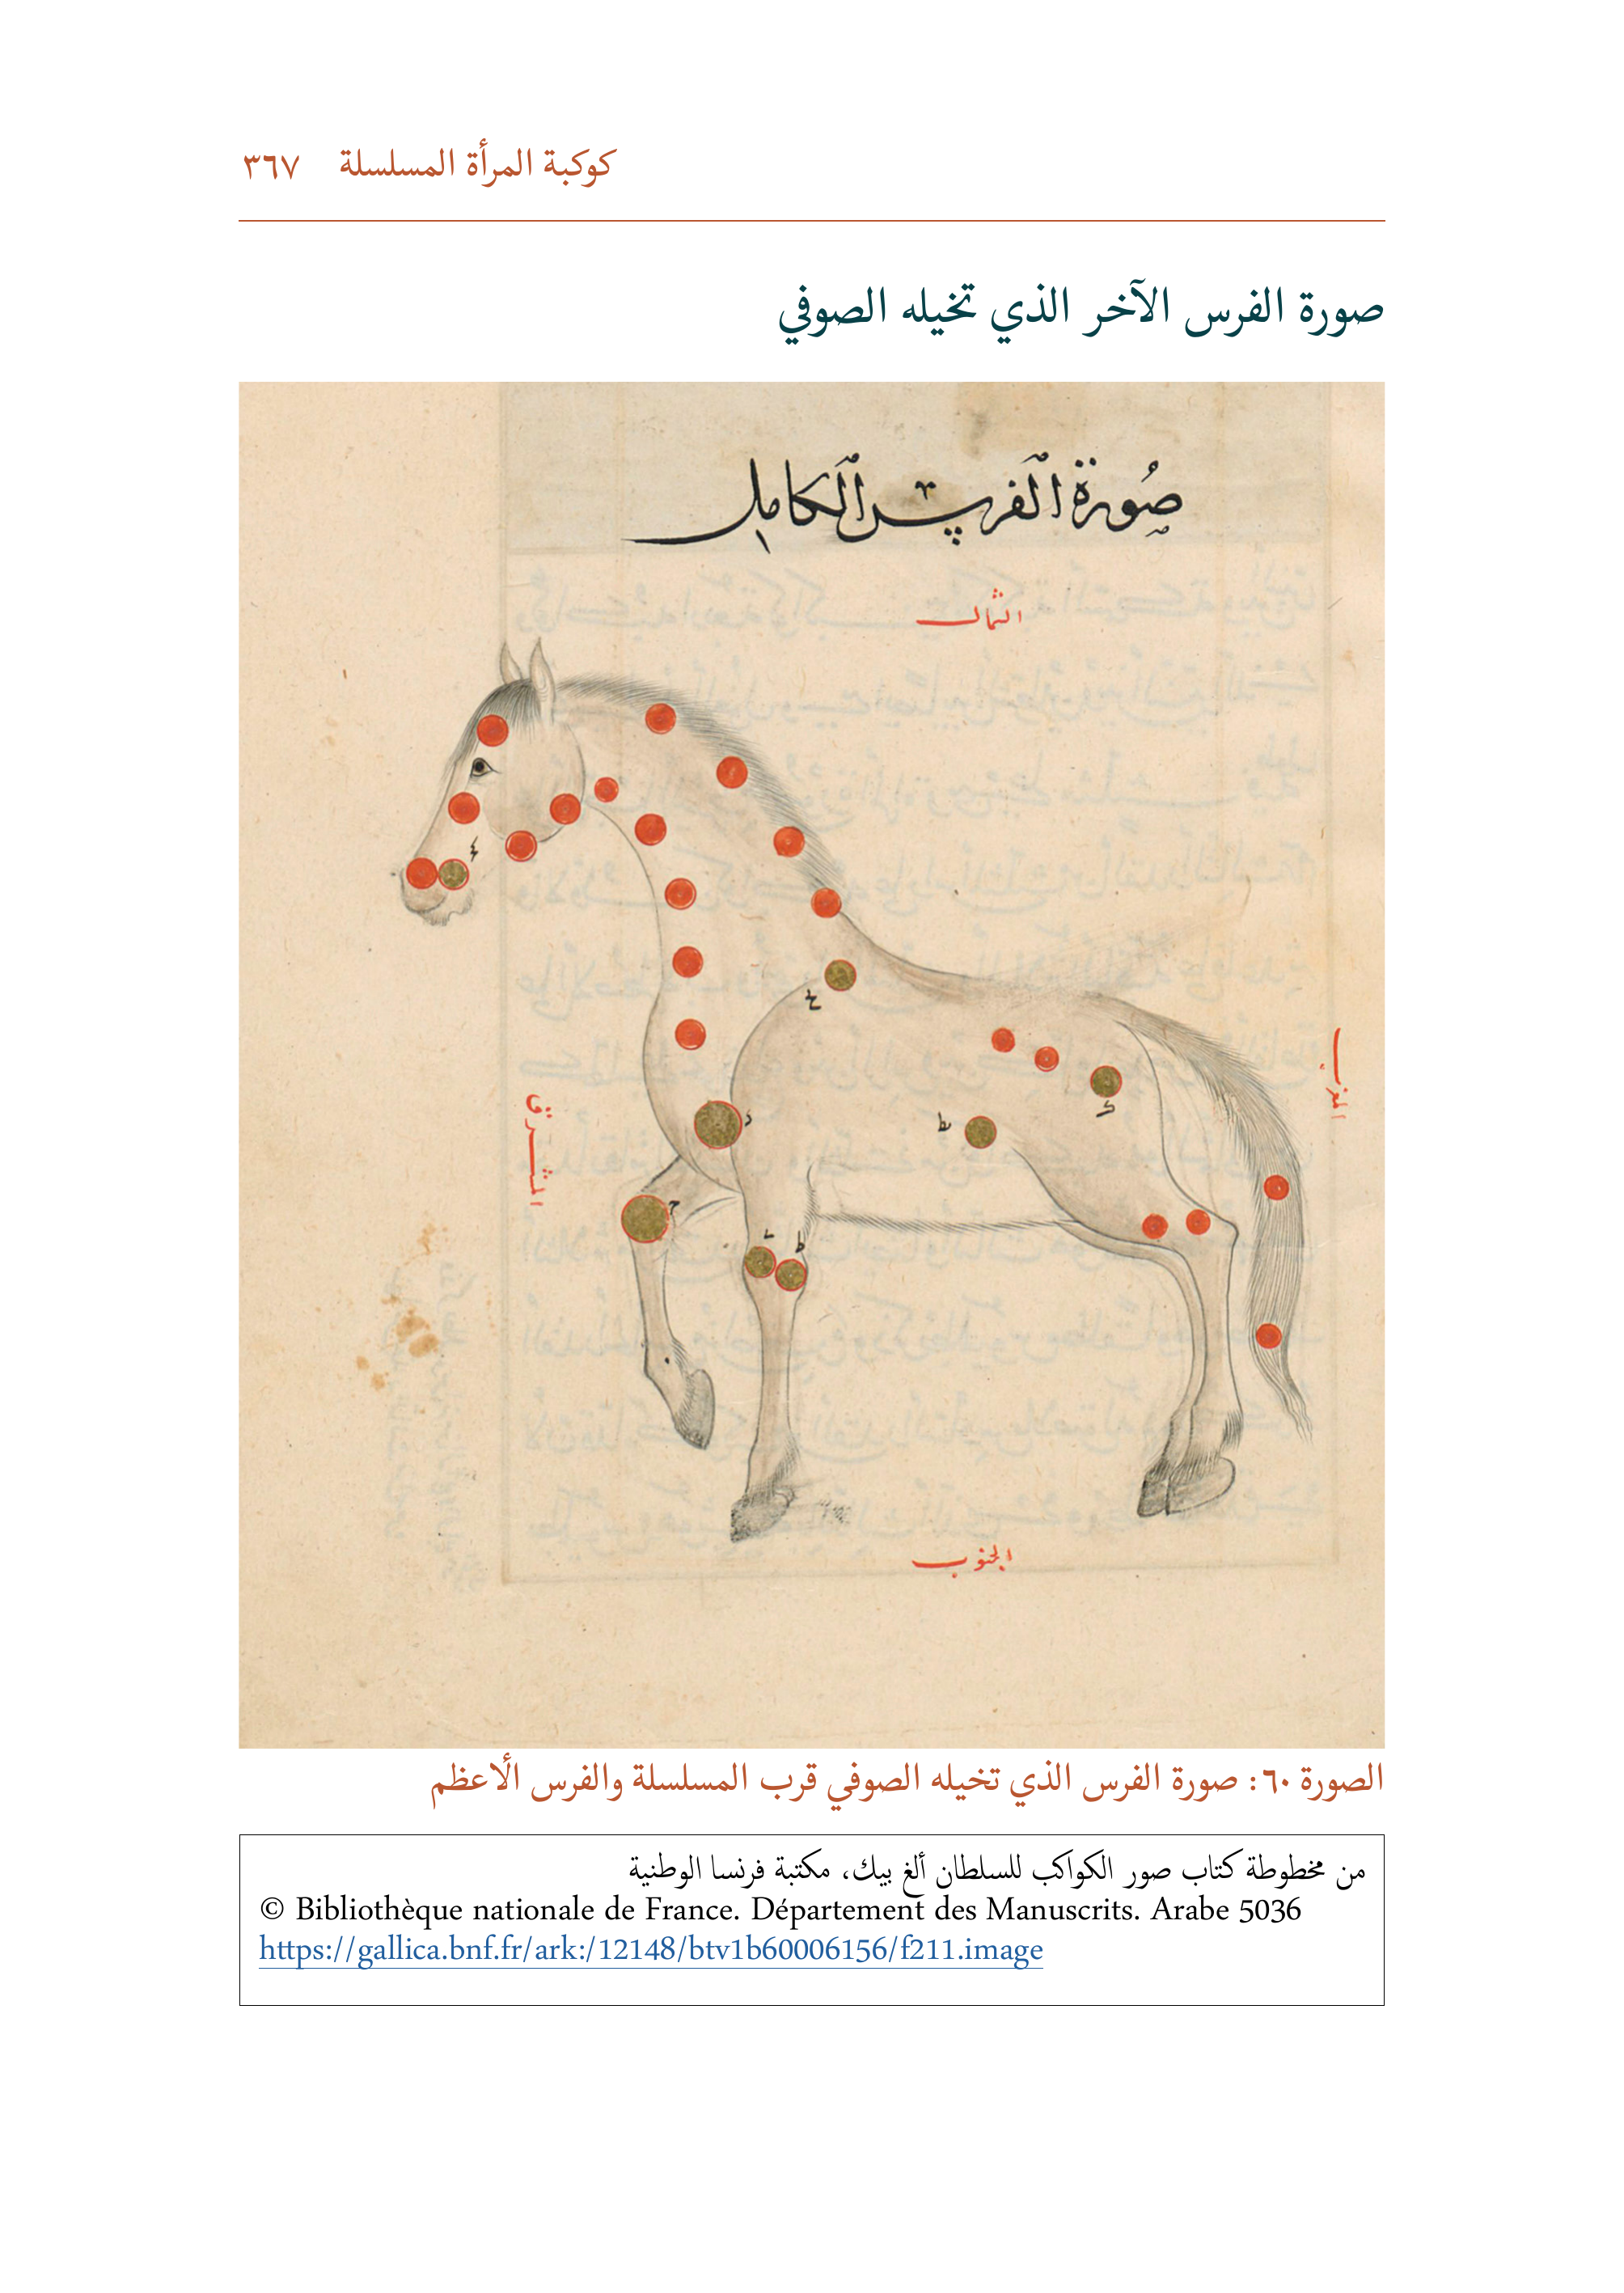 كوكبة المرأة المسلسلة ٣٦٧
صورة الفرس الآخر الذي تخيله الصوفي
صُورَة الفرس الكامل
الشمال
المغرب
المشرق
الجنوب
الصورة ٦٠: صورة الفرس الذي تخيله الصوفي قرب المسلسلة والفرس الأعظم
من مخطوطة كتاب صور الكواكب للسلطان ألغ بيك، مكتبة فرنسا الوطنية
© Bibliothèque nationale de France. Département des Manuscrits. Arabe 5036
https://gallica.bnf.fr/ark:/12148/btv1b60006156/f211.image